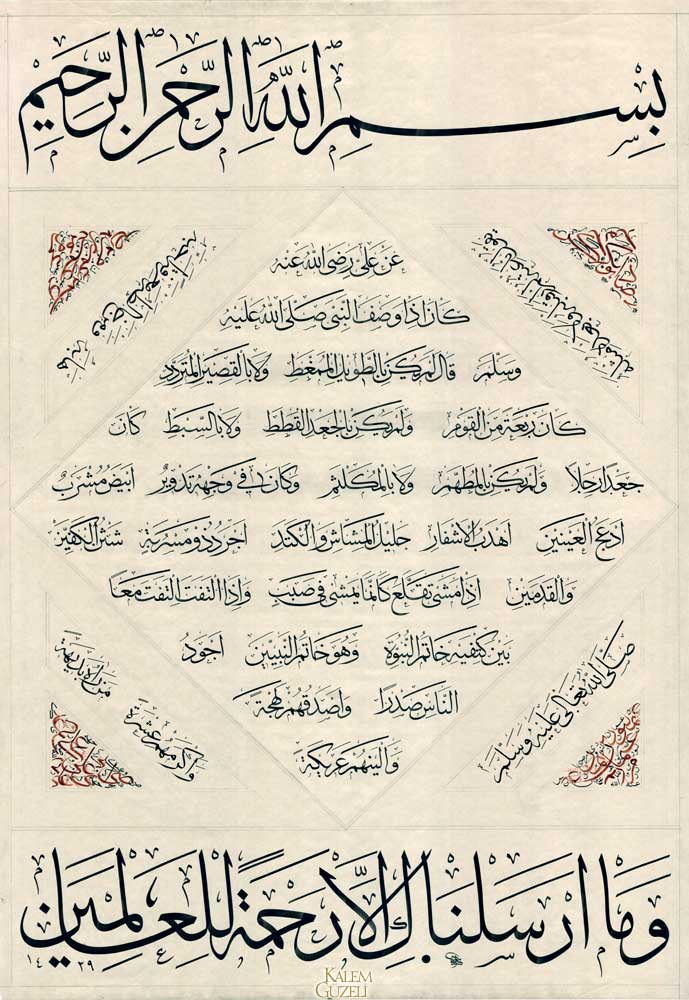 بِسْمِ اللهِ الرَّحْمٰنِ الرَّحِيمِ
عن علي رضي الله عنه
كان اذا وصف النبي صلى الله عليه
وسلم قال لم يكن بالطويل الممغط ولا بالقصير المتردد
كان ربعة من القوم ولم يكن بالجعد القطط ولا بالسبط كان
جعدا رجلا ولم يكن بالمطهم ولا بالمكلثم وكان في وجهه تدوير ابيض مشرب
ادعج العينين اهدب الاشفار جليل المشاش والكتد اجرد ذو مسربة شثن الكفين
والقدمين اذا مشى تقلع كانما يمشي في صبب واذا التفت التفت معا
بين كتفيه خاتم النبوة وهو خاتم النبيين اجود
الناس صدرا واصدقهم لهجة
والينهم عريكة
واكرمهم عشرة
من رآه بديهة
صلى الله تعالى عليه وسلم
وَمَا اَرْسَلْنَاكَ اِلَّا رَحْمَةً لِلْعَالَمِينَ
١٤٢٩
KALEM GÜZELİ